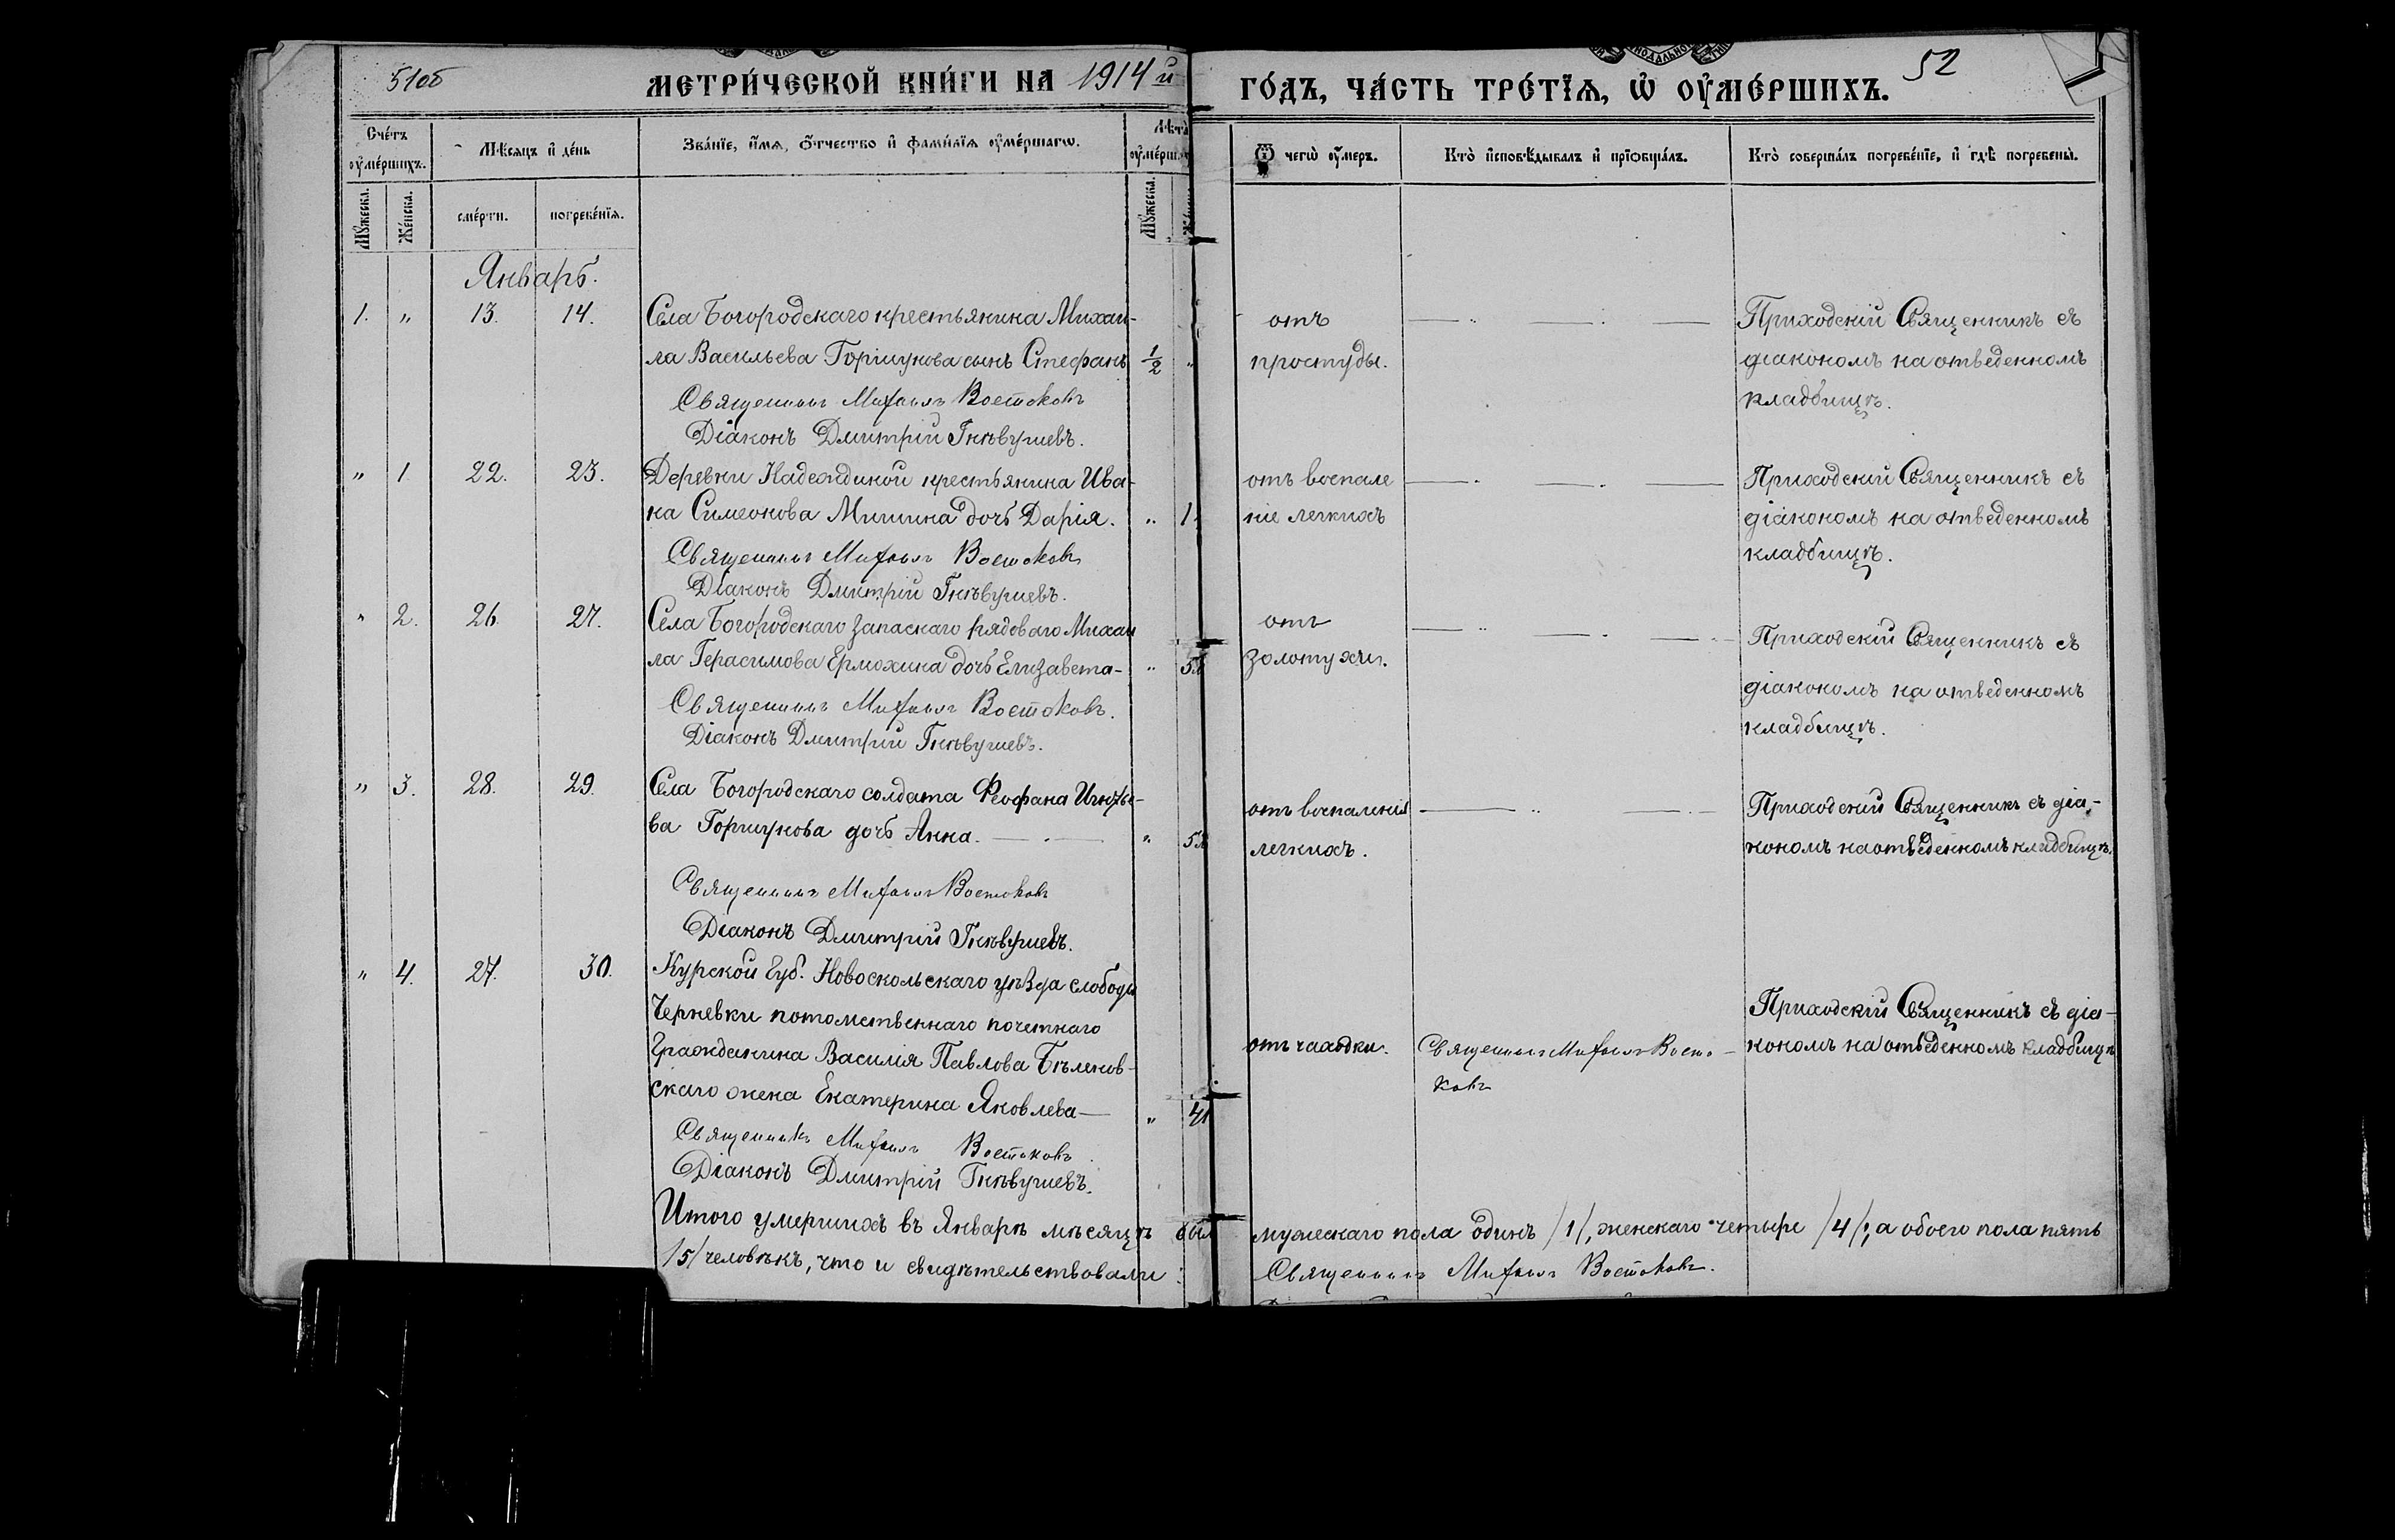 51об
МЕТРИ́ЧЕСКОЙ КНИ́ГИ НА 1914 й
ГО́ДЪ, ЧА́СТЬ ТРЕ́ТЇѦ, Ѡ҆ ОУ҆МЕ́РШИХЪ.
52
Сче́тъ оу҆ме́ршихъ.
Мѣ́сѧцъ и҆ де́нь
Зва́нїе, и҆́мѧ, ѻ҆́тчество и҆ фами́лїѧ оу҆ме́ршагѡ.
Лѣ́та
Мꙋ́жеска.
Же́нска.
сме́рти.
погребе́нїѧ.
Мꙋ́жеска.
Ѿ чегѡ̀ оу҆́меръ.
Кто̀ и҆сповѣ́дывалъ и҆ прїѡбща́лъ.
Кто̀ соверша́лъ погребе́нїе, и҆ гдѣ̀ погребены̀.
Январь.
1. " 13. 14. Села Богородскаго крестьянина Михаи-
ла Васильева Горшунова сынъ Стефанъ 1/2 "
Священникъ Михаилъ Востоковъ
Діаконъ Дмитрій Гнѣвушевъ.
отъ
простуды.
Приходскій Священникъ съ
діакономъ на отведенномъ
кладбищѣ.
" 1 22. 23. Деревни Надеждиной крестьянина Ива-
на Симеонова Мишина дочь Дарія. " 1.
Священникъ Михаилъ Востоковъ
Діаконъ Дмитрій Гнѣвушевъ.
отъ воспале
ніе легкихъ
Приходскій Священникъ съ
діакономъ на отведенномъ
кладбищѣ.
" 2. 26. 27. Села Богородскаго запаснаго рядоваго Михаи
ла Герасимова Ермохина дочь Елизавета- "
Священникъ Михаилъ Востоковъ.
Діаконъ Дмитрій Гнѣвушевъ.
отъ
золотухи.
Приходскій Священникъ съ
діакономъ на отведенномъ
кладбищѣ.
" 3. 28. 29. Села Богородскаго солдата Феофана Игнатье-
ва Горшунова дочь Анна. "
Священникъ Михаилъ Востоковъ
Діаконъ Дмитрій Гнѣвушевъ.
отъ воспаленія
легкихъ.
Приходскій Священникъ съ діа-
кономъ на отведенномъ кладбищѣ.
" 4. 27. 30. Курской Губ. Новоскольскаго уѣзда слободы
Черневки потомственнаго почетнаго
Гражданина Василія Павлова Бѣленов-
скаго жена Екатерина Яковлева— " 41
Священникъ Михаилъ Востоковъ
Діаконъ Дмитрій Гнѣвушевъ.
отъ чахотки.
Священникъ Михаилъ Восто-
ковъ
Приходскій Священникъ съ діа-
кономъ на отведенномъ кладбищѣ
Итого умершихъ въ Январѣ мѣсяцѣ было мужескаго пола одинъ /1/, женскаго четыре /4/, а обоего пола пять
/5/ человѣкъ, что и свидѣтельствовали:
Священникъ Михаилъ Востоковъ.